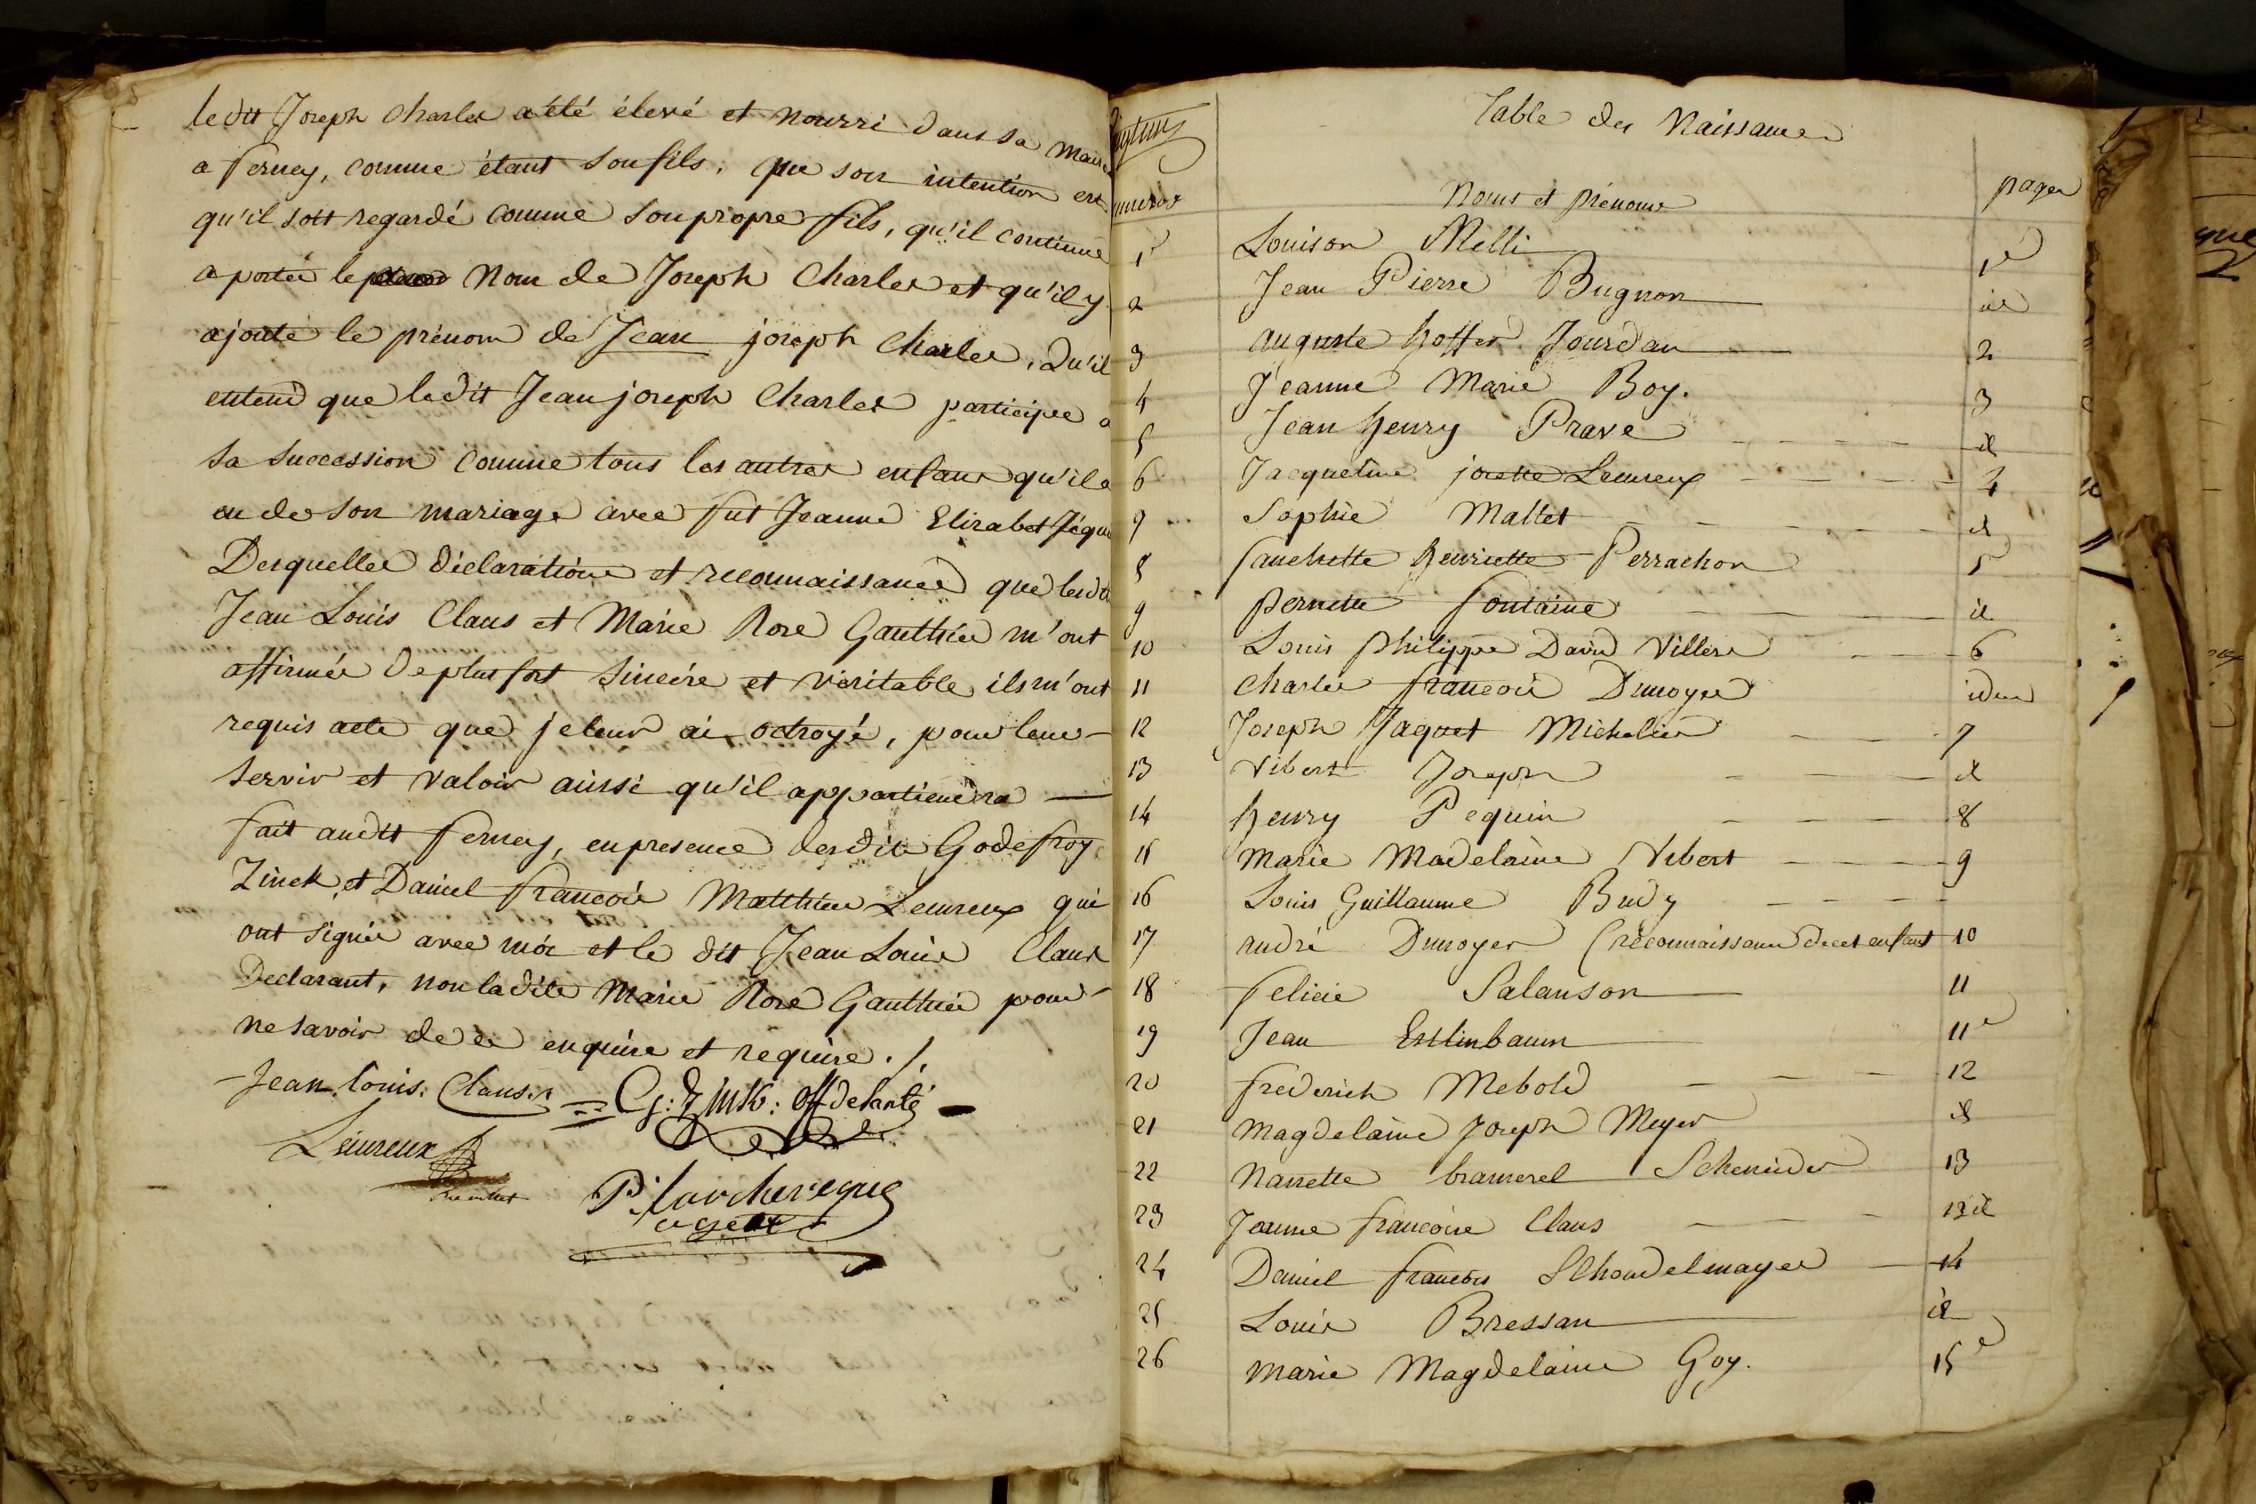 ledit Joseph Charles a été élevé et nourri dans sa maison
a ferney, comme étant son fils; que son intention est
qu'il soit regardé comme son propre fils, qu'il continue
a porter le nom de Joseph Charles et qu'il y
ajoute le prénom de Jean joseph Charles, Qu'il
entend que ledit Jean joseph Charles participe a
sa succession comme tous les autres enfans qu'il a
eu de son mariage avec fut Jeanne Elizabet
Desquelles déclarations et reconnaissances que lesdits
Jean Louis Claus et Marie Rose Gauthier m'ont
affirmés de plus fort sincére et véritable, ils m'ont
requis acte que je leur ai octroyé, pour leur
servir et valoir ainsi qu'il appartiendra
fait audit ferney, en presence desdits Godefroy
Zinck, et Daniel francois Matthieu Leureux qui
ont signés avec moi et le dit Jean Louis Claus
Declarant, non ladite Marie Rose Gauthier pour
ne savoir de ce enquise et requise ./.
Jean Louis: Claus. = G: Zink: off de santé
Leureux
P. Larchevêque
agent
numeros
Table des Naissances
Noms et Prénoms pages
1r Louison Melli 1e
2 Jean Pierre Bugnon id
3 Auguste hoffer Jourdan 2
4 Jeanne Marie Boy. 3
5 Jean henry Prave id
6 Jacqueline josette Leureux 4
7 Sophie Mallet id
8 fanchette henriette Perrachon 5
9 pernette fontaine id
10 Louis philippe David Villers 6
11 Charles francois Dunoyer idem
12 Joseph Jaquet Michelier 7
13 Vibert Joseph id
14 henry Pequin 8
15 Marie Madelaine Vibert 9
16 Louis Guillaume Budy
17 André Dunoyer (reconnaissance de cet enfant 10
18 felicie Salanson 11
19 Jean Esslinbaum 11e
20 frederich Mebold 12
21 Magdelaine Joseph Meyer id
22 Nanette bramerel Scheneider 13
23 Jeanne francoise Claus 13 id
24 Daniel francois Schoudelmayer 14
25 Louis Bressan id
26 Marie Magdelaine Goy. 15e